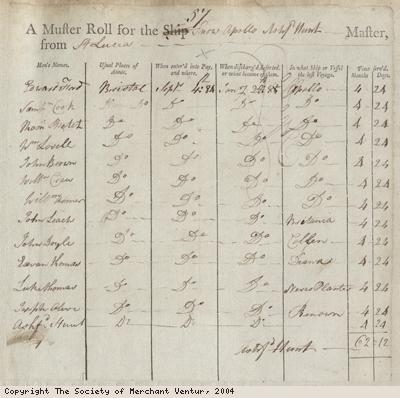 57
A Muster Roll for the Ship Snow Apollo Ashfd Hunt Master,
from St Lucia
Men's Names. Usual Places of Abode. When enter'd into Pay, and where. When discharg'd, deserted, or what become of them. In what Ship or Vessel the last Voyage. Time serv'd. Months Days.
Bristol Sept 4th 84 Jan 28th 85 Apollo 4 24
Saml Cook Do Do Do Do 4 24
Do Do Do Do 4 24
Wm Lovell Do Do Do Do 4 24
John Brown Do Do Do Do 4 24
Willm Crew Do Do Do Do 4 24
Do Do Do Do 4 24
John Leach Do Do Do Britania 4 24
John Boyle Do Do Do 4 24
Evan Thomas Do Do Do Diana 4 24
Luke Thomas Do Do Do Planter 4 24
Joseph Do Do Do Renown 4 24
Ashfd Hunt Do Do Do 4 24
62 12
Ashfd Hunt
Copyright The Society of Merchant Ventur, 2004